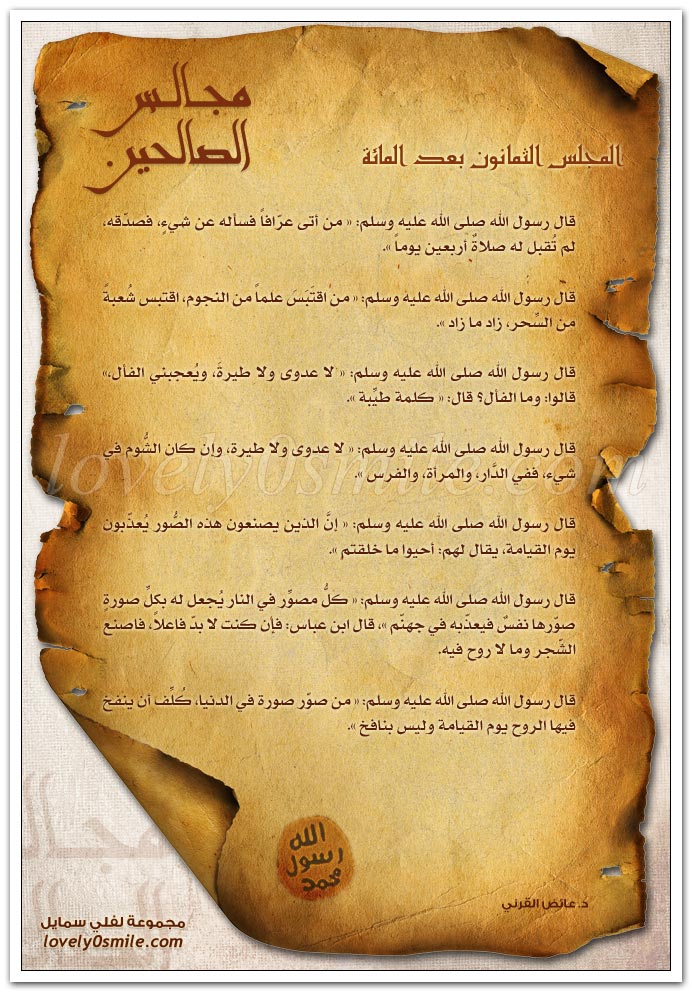 مجالس
الصالحين
المجلس الثمانون بعد المائة
قال رسول الله صلى الله عليه وسلم: « من أتى عرّافاً فسأله عن شيءٍ، فصدّقه،
لم تُقبل له صلاةٌ أربعين يوماً ».
قال رسول الله صلى الله عليه وسلم: « منِ اقتَبَسَ علماً من النجوم، اقتبس شُعبةً
من السِّحر، زاد ما زاد ».
قال رسول الله صلى الله عليه وسلم: « لا عدوى ولا طيرةَ، ويُعجبني الفأل،»
قالوا: وما الفأل؟ قال: « كلمة طيِّبة ».
قال رسول الله صلى الله عليه وسلم: « لا عدوى ولا طيرة، وإن كان الشُّوم في
شيء، ففي الدَّار، والمرأة، والفرس ».
قال رسول الله صلى الله عليه وسلم: « إنَّ الذين يصنعون هذه الصُّور يُعذّبون
يوم القيامة، يقال لهم: أحيوا ما خلقتم ».
قال رسول الله صلى الله عليه وسلم: « كلُّ مصوِّر في النار يُجعل له بكلِّ صورةٍ
صوّرها نفسٌ فيعذّبه في جهنّم »، قال ابن عباس: فإن كنت لا بدّ فاعلاً، فاصنع
الشّجر وما لا روح فيه.
قال رسول الله صلى الله عليه وسلم: « من صوّر صورة في الدنيا، كُلِّف أن ينفخ
فيها الروح يوم القيامة وليس بنافخ ».
الله
رسول
محمد
د.عائض القرني
مجموعة لفلي سمايل
lovely0smile.com
lovely0smile.com